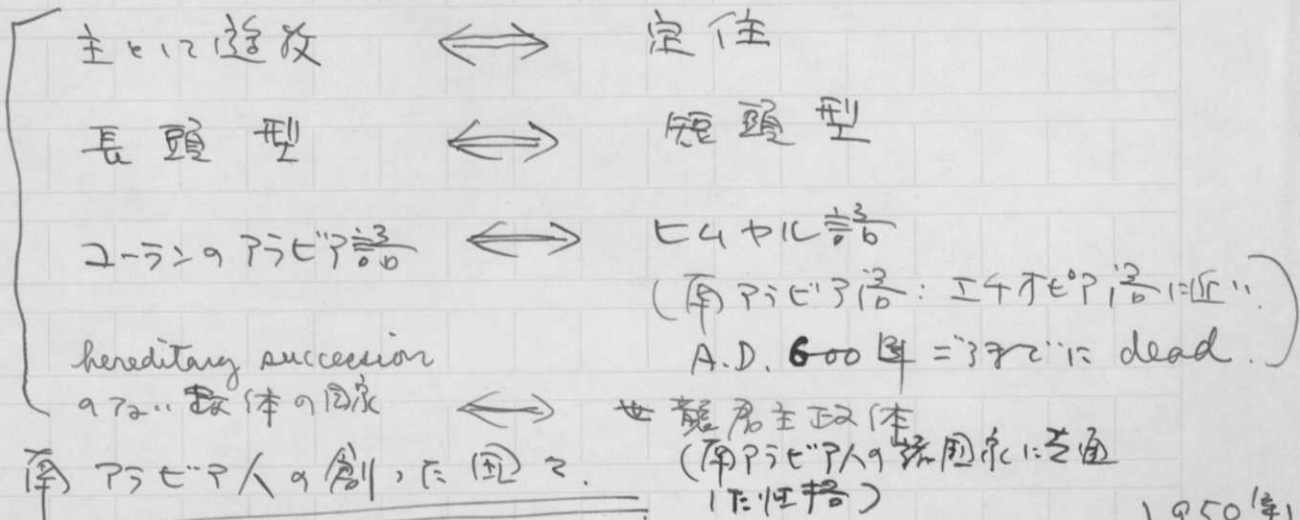 主として遊牧 ⟺ 定住
長頭型 ⟺ 短頭型
コーランのアラビア語 ⟺ ヒムヤル語
(南アラビア語: エチオピア語に近い.
A.D. 600年ごろまでに dead.)
hereditary succession
のない政体の国家 ⟺ 世襲君主政体
(南アラビア人の諸国家に共通
した性格)
南アラビア人の創った国々.
1950